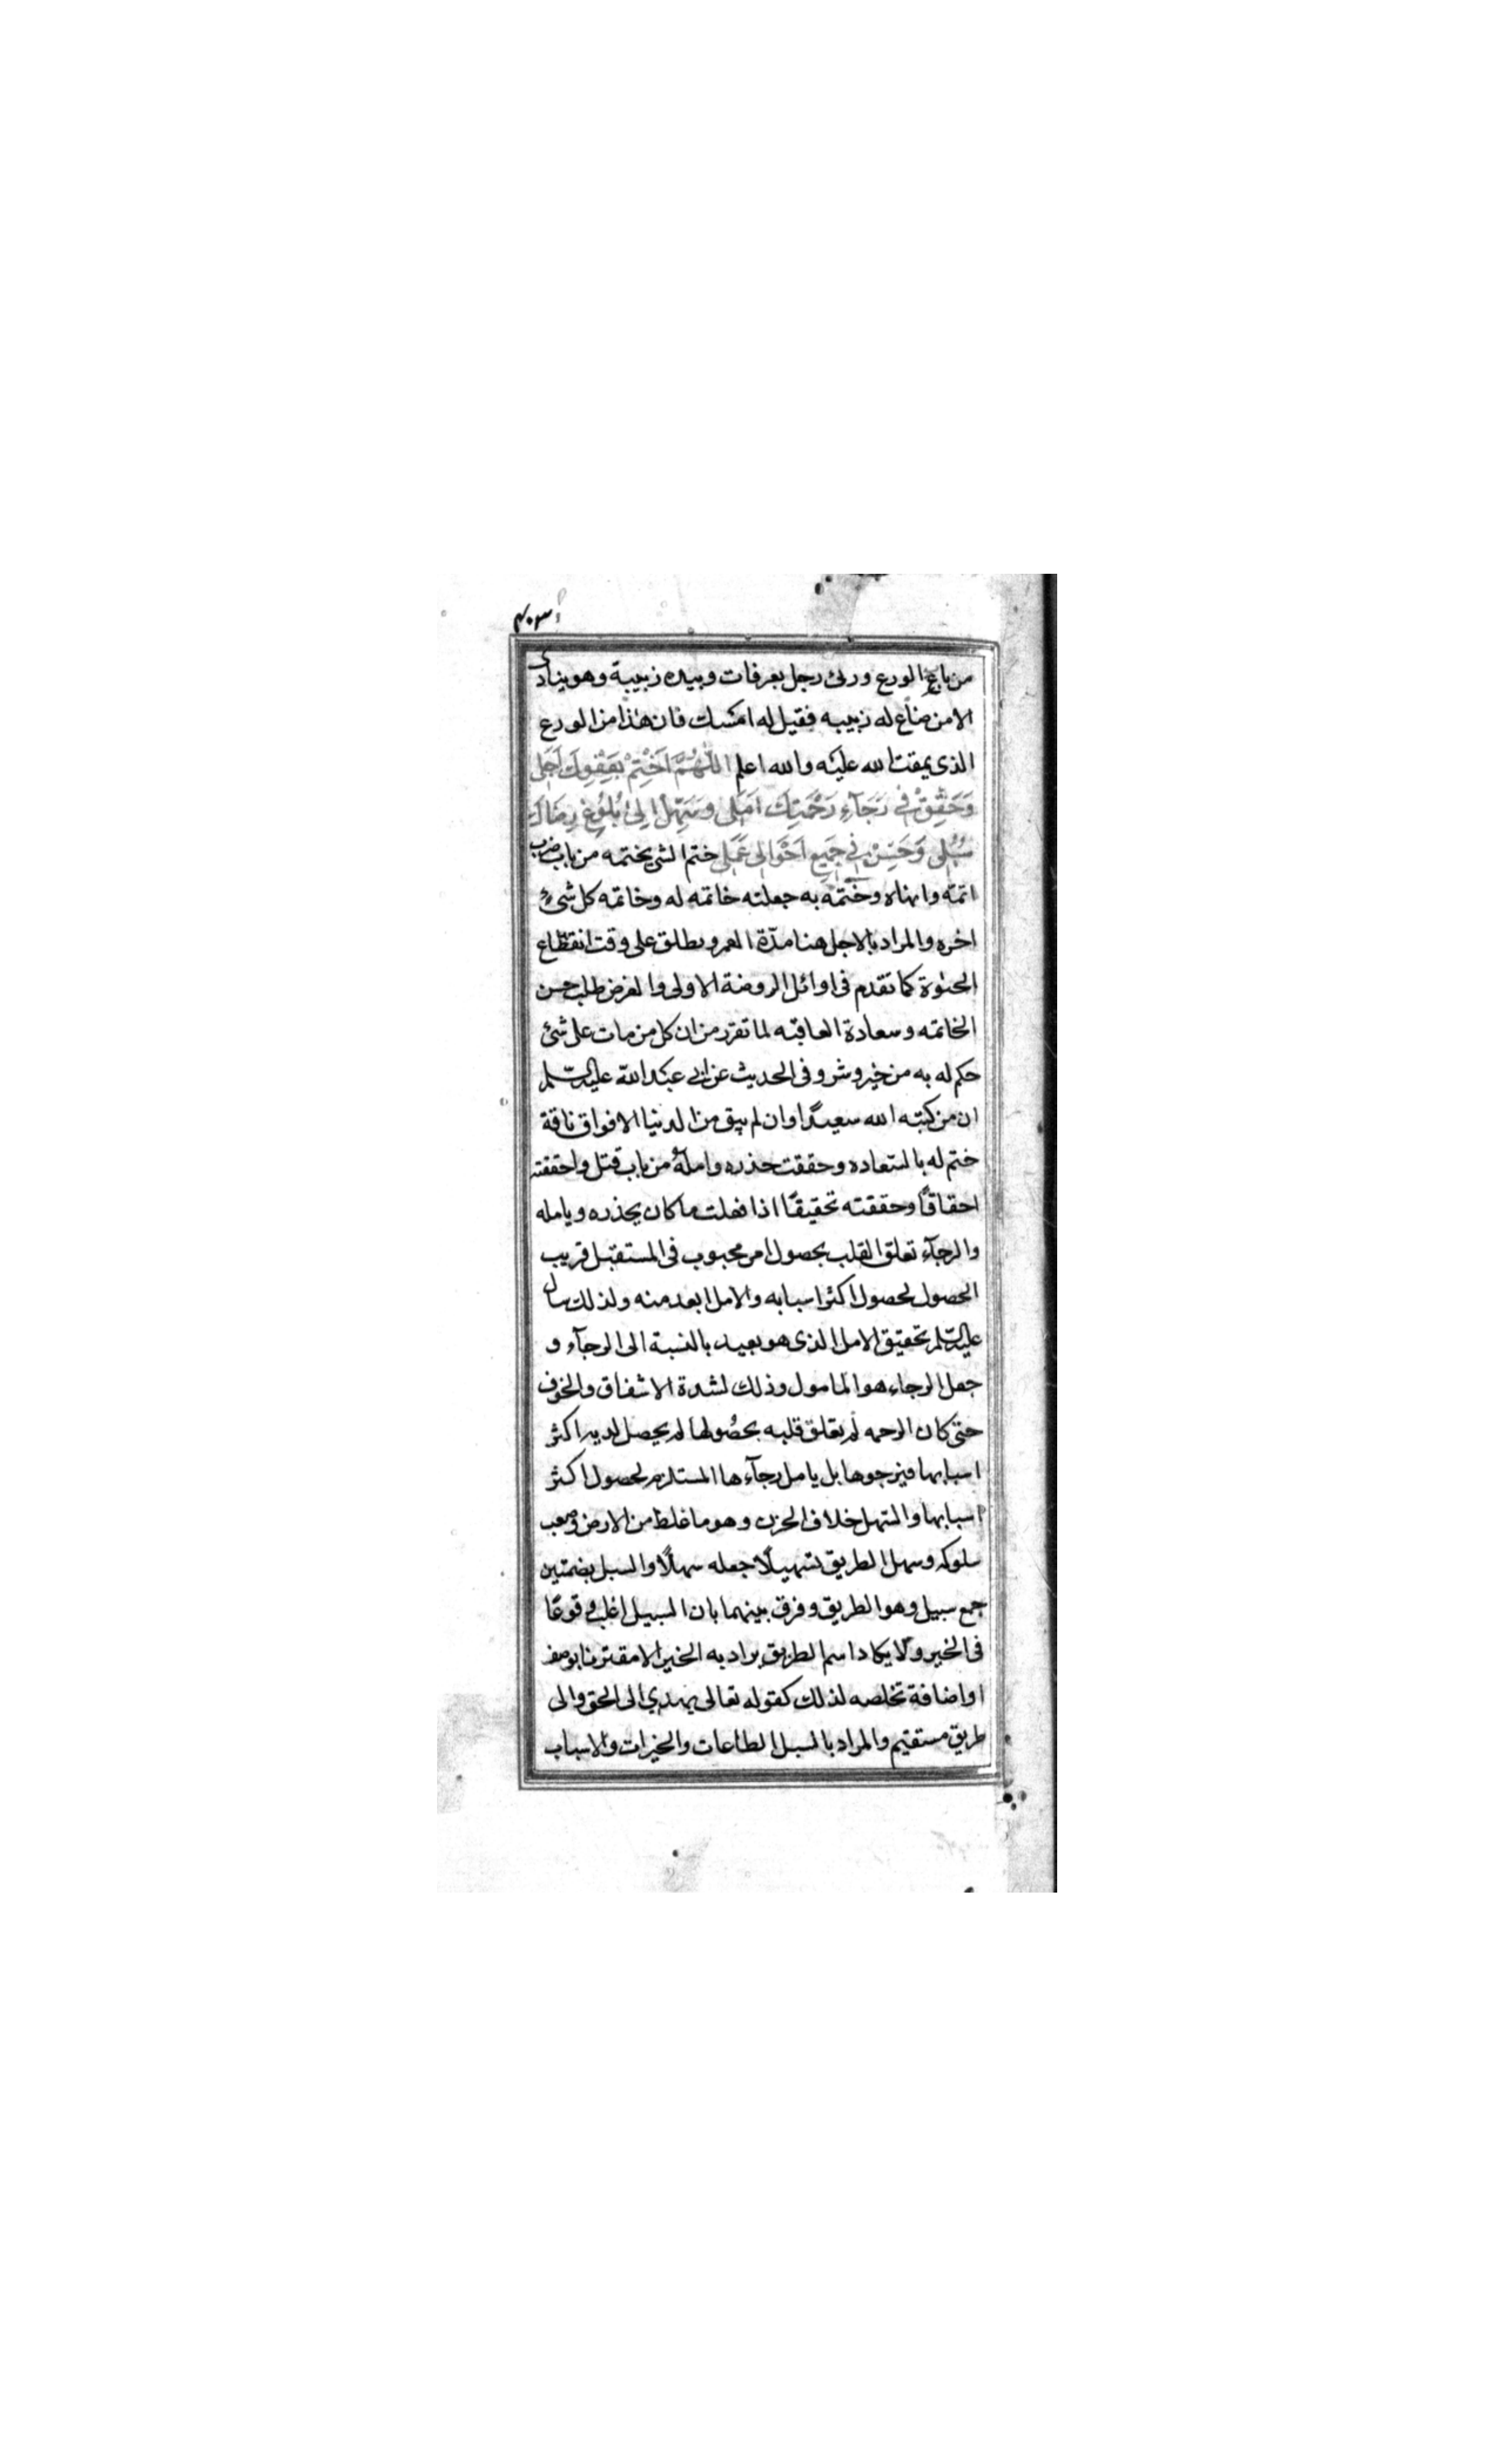 ٤٠٣
من بايع الورع ورئ رجل بعرفات وبيده زبيبة وهو ينادى
الا من ضاع له زبيبه فقيل له امسك فان هذا من الورع
الذى يمقت الله عليه والله اعلم اللهُمَّ اخْتِمْ بِعَفْوِكَ اَجَلى
وَحَقِّقْ فى رَجَآءِ رَحْمَتِكَ اَمَلى وسَهِّلْ اِلىٰ بُلُوغِ رِضَاكَ
سُبُلى وَحَسِّنْ فى جَميعِ اَحْوَالى عَمَلى ختم الشئ يختمه من باب ضرب
اتمه وانهاه وختمه به جعلته خاتمه له وخاتمه كل شئٍ
اخره والمراد بالاجل هنا مدّة العمر ويطلق على وقت انقطاع
الحيوة كما تقدم فى اوائل الروضة الاولى والغرض طلب حسن
الخاتمه وسعادة العاقبه لما تقرر من ان كل من مات على شئ
حكم له به من خير وشر وفى الحديث عن ابى عبد اللّه عليه السّلم
ان من كتبه الله سعيدًا وان لم يبق من الدنيا الا فواق ناقة
ختم له بالسعاده وحققت حذره وامله من باب قتل واحققته
احقاقًا وحققته تحقيقًا اذا فعلت ما كان يحذره ويامله
والرجآء تعلق القلب بحصول امر محبوب فى المستقبل قريب
الحصول لحصول اكثر اسبابه والامل ابعد منه ولذلك سال
عليه السّلم تحقيق الامل الذى هو بعيد بالنسبة الى الرجآء و
جعل الرجاء هو المامول وذلك لشدة الاشفاق والخوف
حتى كان الرحمه لم يعلق قلبه بحصُولها لم يحصل لديه اكثر
اسبابها فيرجوها بل يامل رجآءها المستلزم لحصول اكثر
اسبابها والسهل خلاف الحزن وهو ما غلظ من الارض وصعب
سلوكه وسهل الطريق تسهيلًا جعله سهلًا والسبل بضمتين
جمع سبيل وهو الطريق وفرق بينهما بان السبيل اغلب وقوعًا
فى الخير ولا يكاد اسم الطريق يراد به الخير الا مقترنا بوصف
او اضافة تخلصه لذلك كقوله تعالى يهدي الى الحق والى
طريق مستقيم والمراد بالسبل الطاعات والخيرات والاسباب